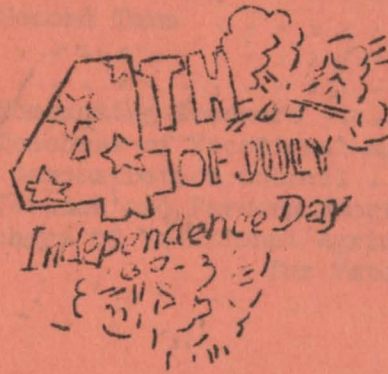 4TH
OF JULY
Independence Day